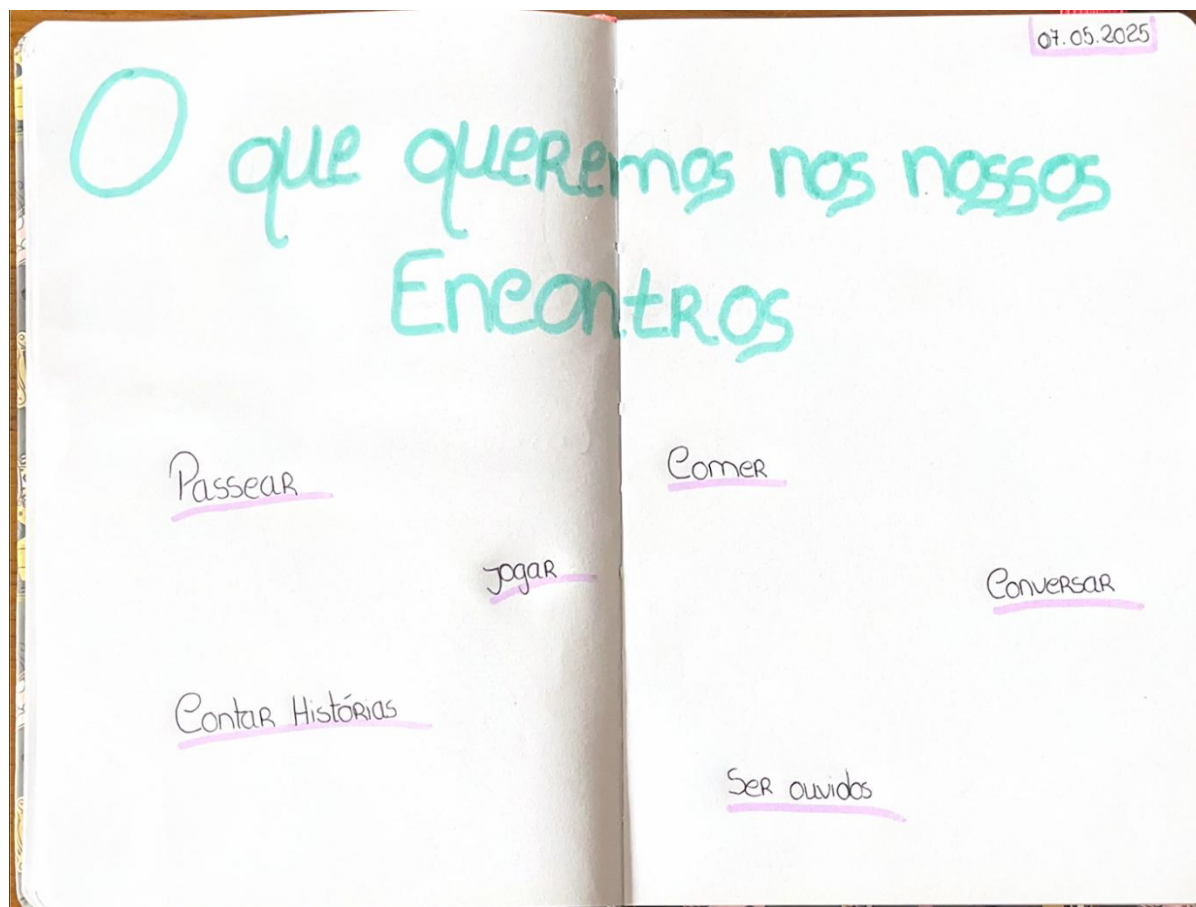 07.05.2025
O que queremos nos nossos
Encontros
Passear
Comer
Jogar
Conversar
Contar Histórias
Ser ouvidos